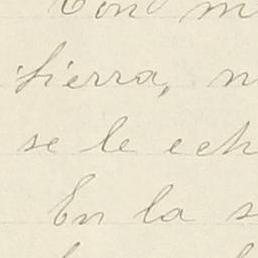 Con m
tierra, n
se le ech
En la s